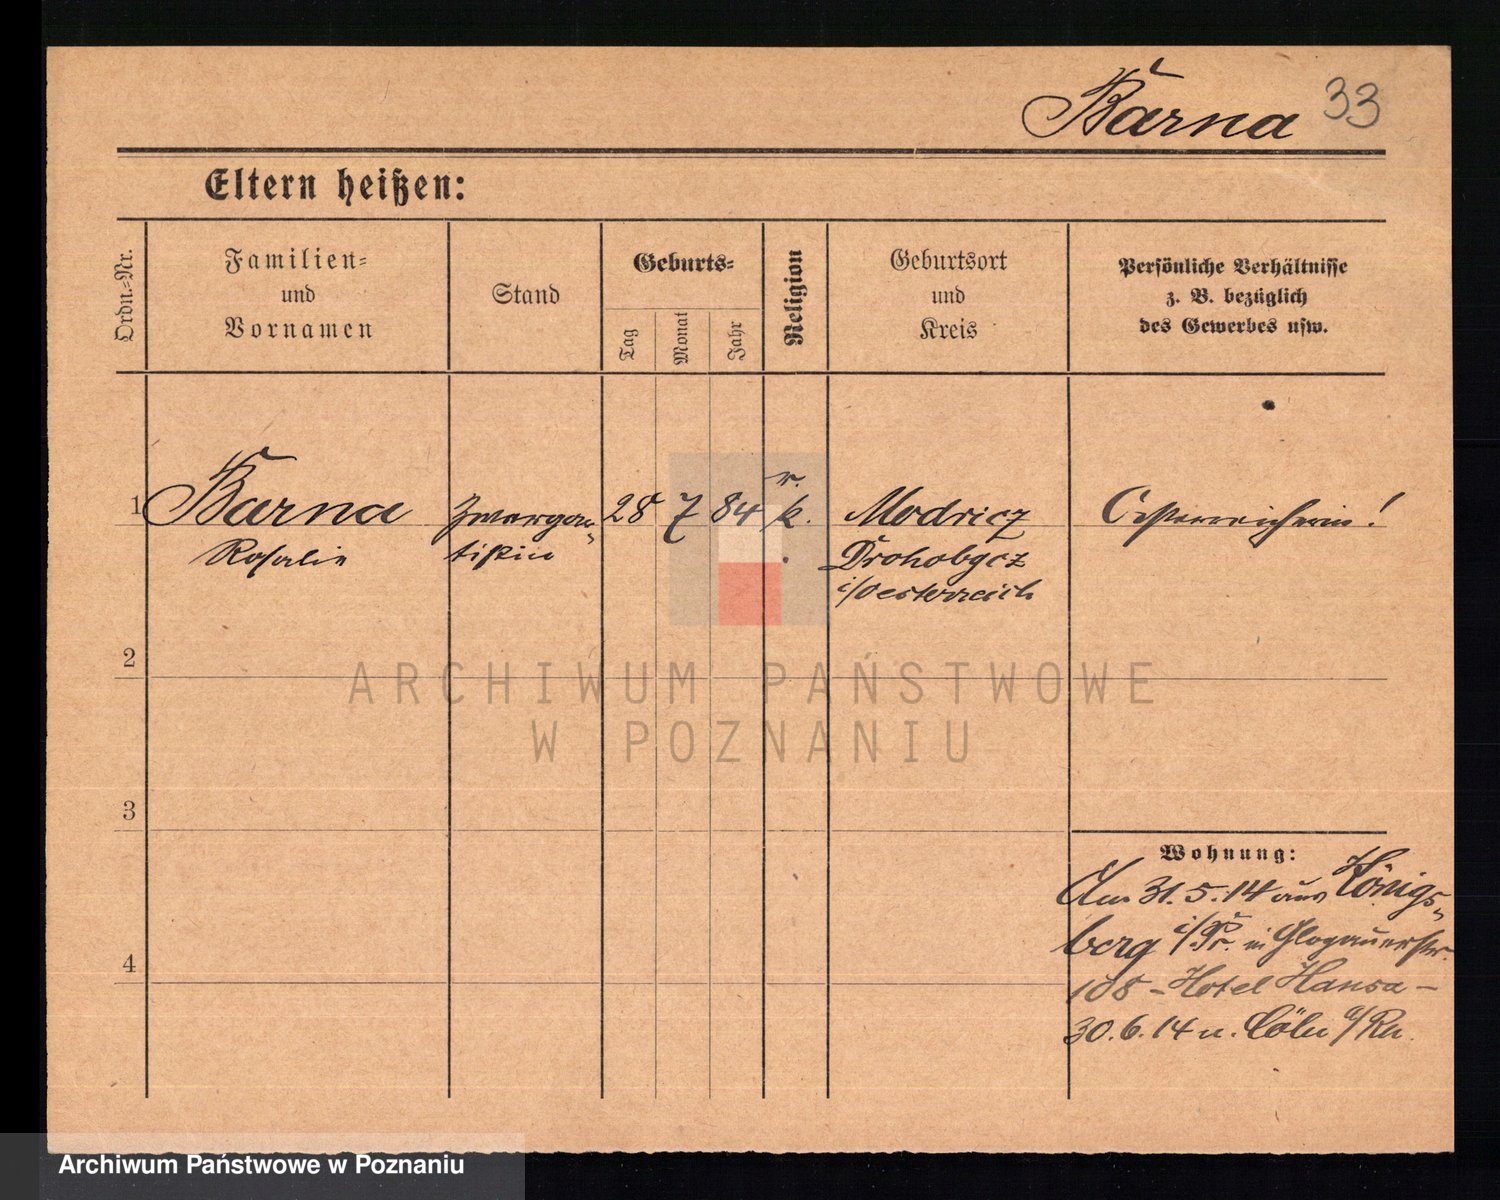 Barna 33
Eltern heißen:
Ordn.-Nr.
Familien-
und
Vornamen
Stand
Geburts-
Tag
Monat
Jahr
Religion
Geburtsort
und
Kreis
Persönliche Verhältnisse
z. B. bezüglich
des Gewerbes usw.
1
Barna
Rosalie
tistin
28 7 84
r.
k.
Modricz
Drohobycz
i/Oesterreich
Oesterreicherin!
2
3
4
Wohnung:
Am 31.5.14 aus Königs-
berg i/Pr. in Glogauerstr.
108 - Hotel Hansa -
30.6.14 n. Cöln a/Rh.
ARCHIWUM PAŃSTWOWE
W POZNANIU
Archiwum Państwowe w Poznaniu